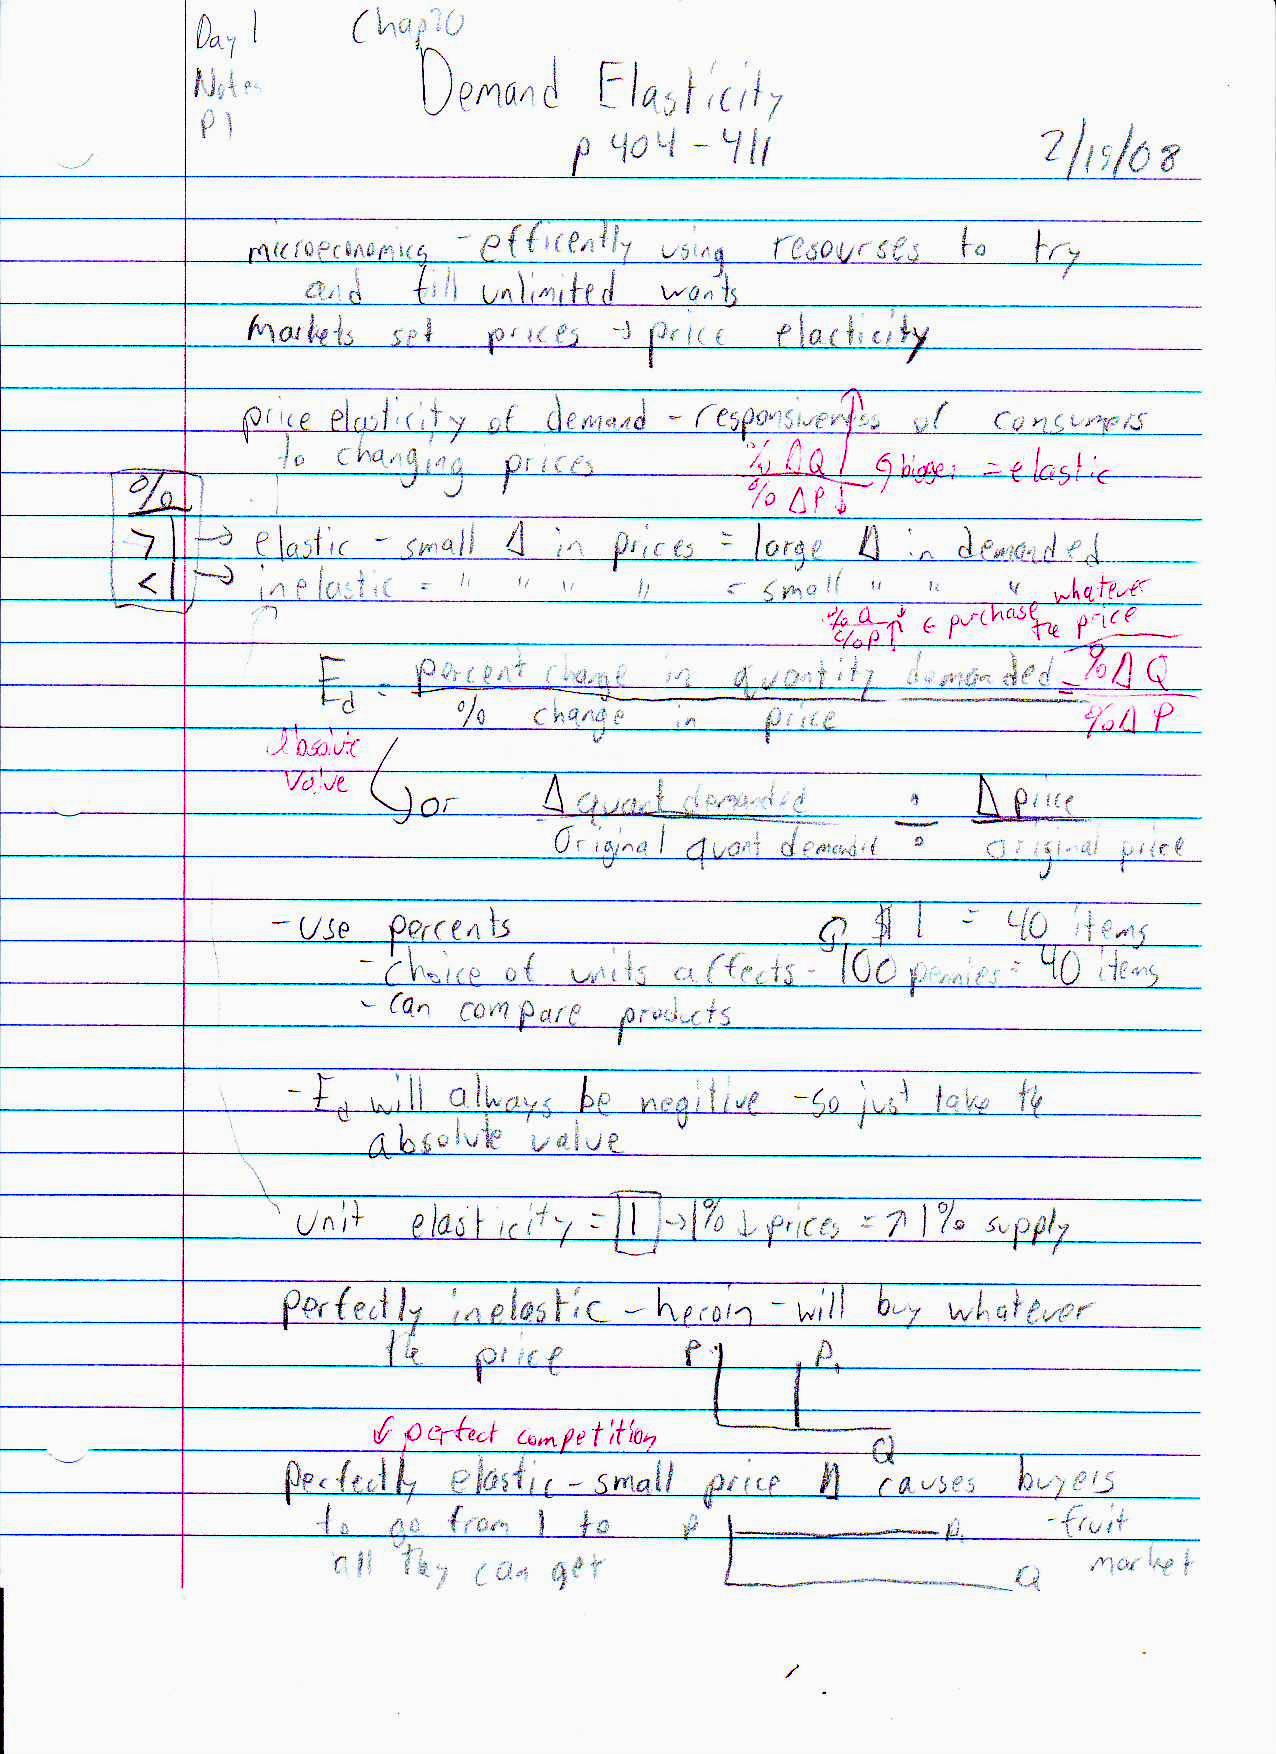 Day 1 Chap 20
Notes Demand Elasticity
P1 p 404 - 411 2/19/08
microeconomics - efficently using resourses to try
and fill unlimited wants
Markets set prices → price elacticity
price elasticity of demand - responsiveness of consumers
to changing prices %ΔQ↑ bigger = elastic
%ΔP↓
%
>1 → elastic - small Δ in prices = large Δ in demanded
<1 → inelastic = " " " " = small " " "
%Q↓ ← purchase whatever
%P↑ the price
Ed = percent change in quantity demanded = %ΔQ
% change in price %ΔP
absolute
value
or Δ quant demanded ÷ Δ price
Original quant demanded original price
- use percents $1 = 40 items
- choice of units affects - 100 pennies = 40 items
- can compare products
- Ed will always be negitive - so just take the
absolute value
unit elasticity = 1 → 1% ↓ prices = ↑ 1% supply
perfectly inelastic - heroin - will buy whatever
the price P P1
Q
↓ perfect competition
perfectly elastic - small price Δ causes buyers
to go from 1 to P P1 - fruit
all they can get Q market